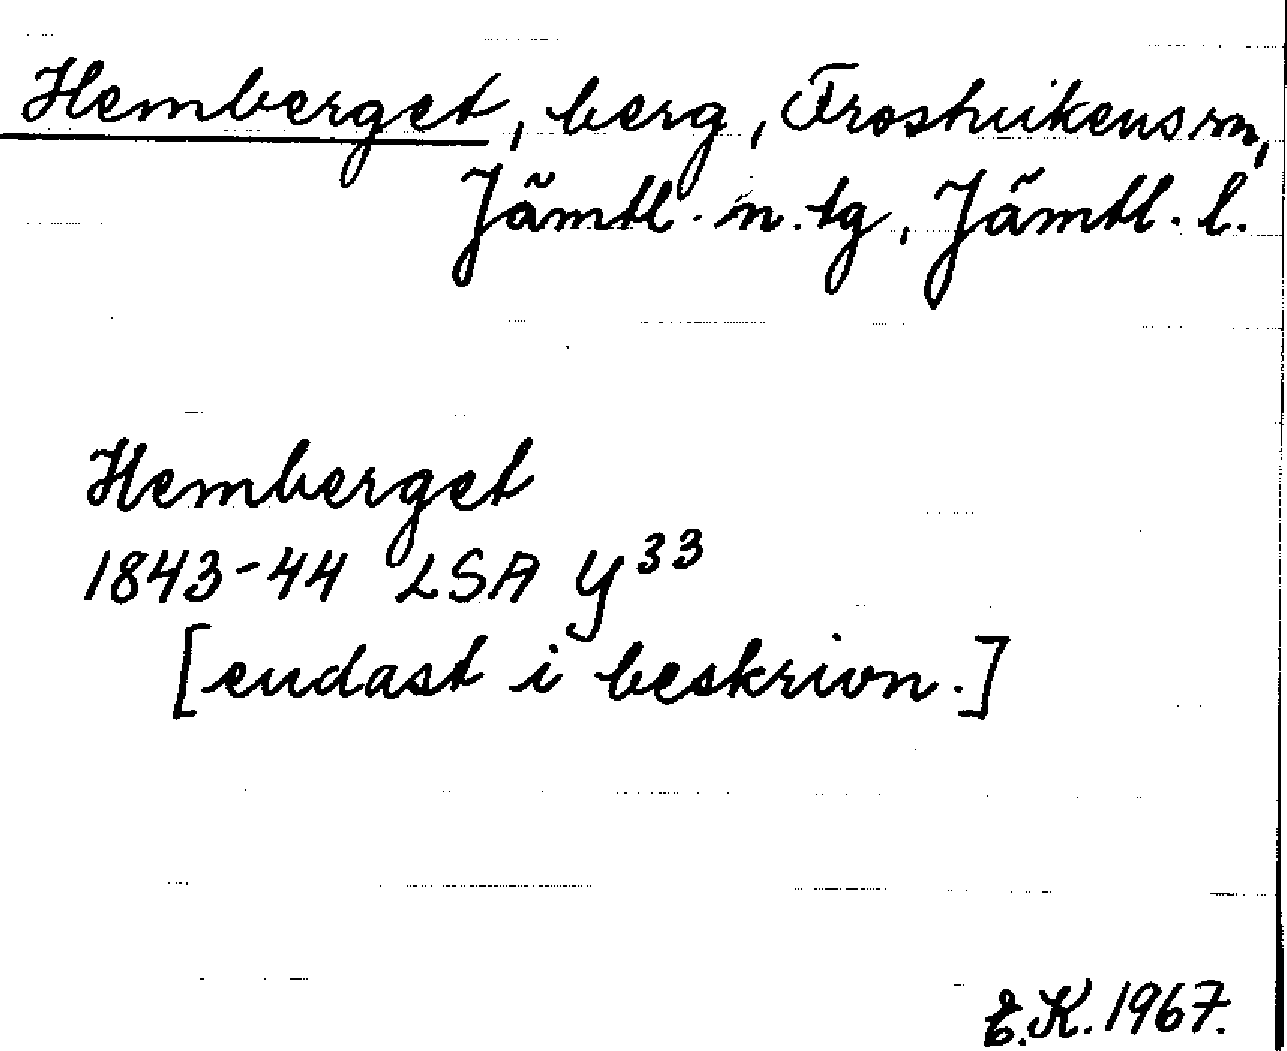 Hemberget, berg, Frostvikens sn,
Jämtl. n. tg, Jämtl. l.
Hemberget
1843-44 LSA Y33
[endast i beskrivn.]
E.K. 1967.